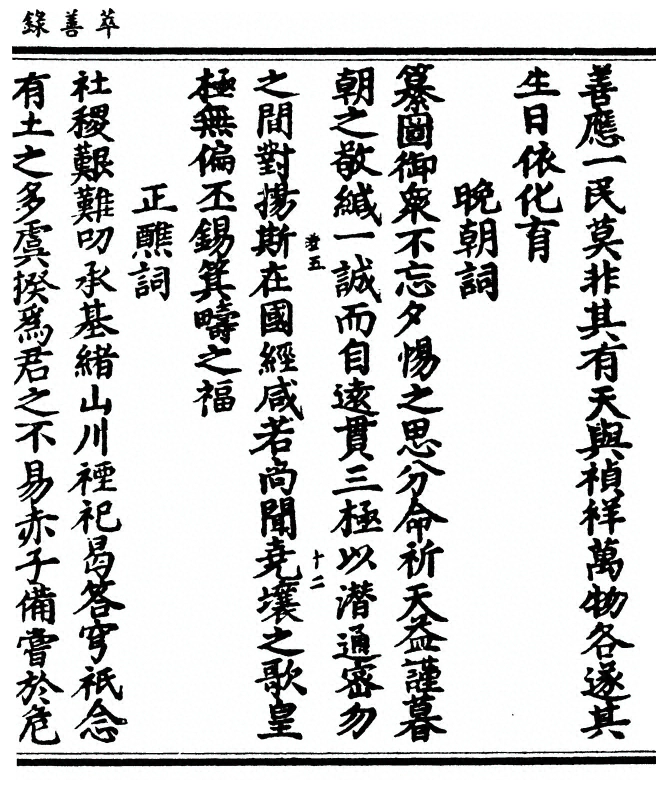 萃善錄
善應一民莫非其有天與禎祥萬物各遂其
生日依化育
晚朝詞
纂圖御衆不忘夕惕之思分命祈天益謹暮
朝之敬緘一誠而自遠貫三極以潛通密勿
五　十二
之間對揚斯在國經咸若尚聞堯壤之歌皇
極無偏丕錫箕疇之福
正醮詞
社稷艱難叨承基緒山川禋祀曷答穹祇念
有土之多虞揆爲君之不易赤子備嘗於危